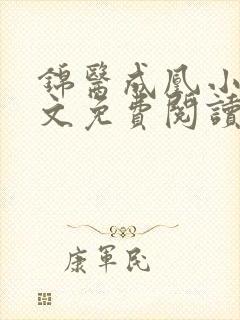 錦醫成凰小
文免費閱讀
康軍民